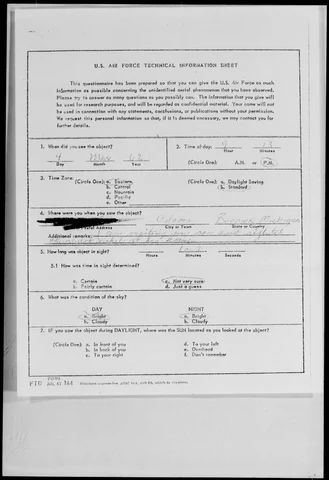 U.S. AIR FORCE TECHNICAL INFORMATION SHEET
This questionnaire has been prepared so that you can give the U.S. Air Force as much
information as possible concerning the unidentified aerial phenomenon that you have observed.
Please try to answer as many questions as you possibly can. The information that you give will
be used for research purposes, and will be regarded as confidential material. Your name will not
be used in connection with any statements, conclusions, or publications without your permission.
We request this personal information so that, if it is deemed necessary, we may contact you for
further details.
1. When did you see the object?
4 Mar 62
Day Month Year
2. Time of day: 9 13
Hour Minutes
(Circle One): A.M. or P.M.
3. Time Zone:
(Circle One): a. Eastern
b. Central
c. Mountain
d. Pacific
e. Other
(Circle One): a. Daylight Saving
b. Standard
4. Where were you when you saw the object?
Postal Address City or Town State or Country
Additional remarks:
5. How long was object in sight?
Hours Minutes Seconds
5.1 How was time in sight determined?
a. Certain
b. Fairly certain
c. Not very sure
d. Just a guess
6. What was the condition of the sky?
DAY
a. Bright
b. Cloudy
NIGHT
a. Bright
b. Cloudy
7. IF you saw the object during DAYLIGHT, where was the SUN located as you looked at the object?
(Circle One): a. In front of you
b. In back of you
c. To your right
d. To your left
e. Overhead
f. Don't remember
FORM
FTD 164